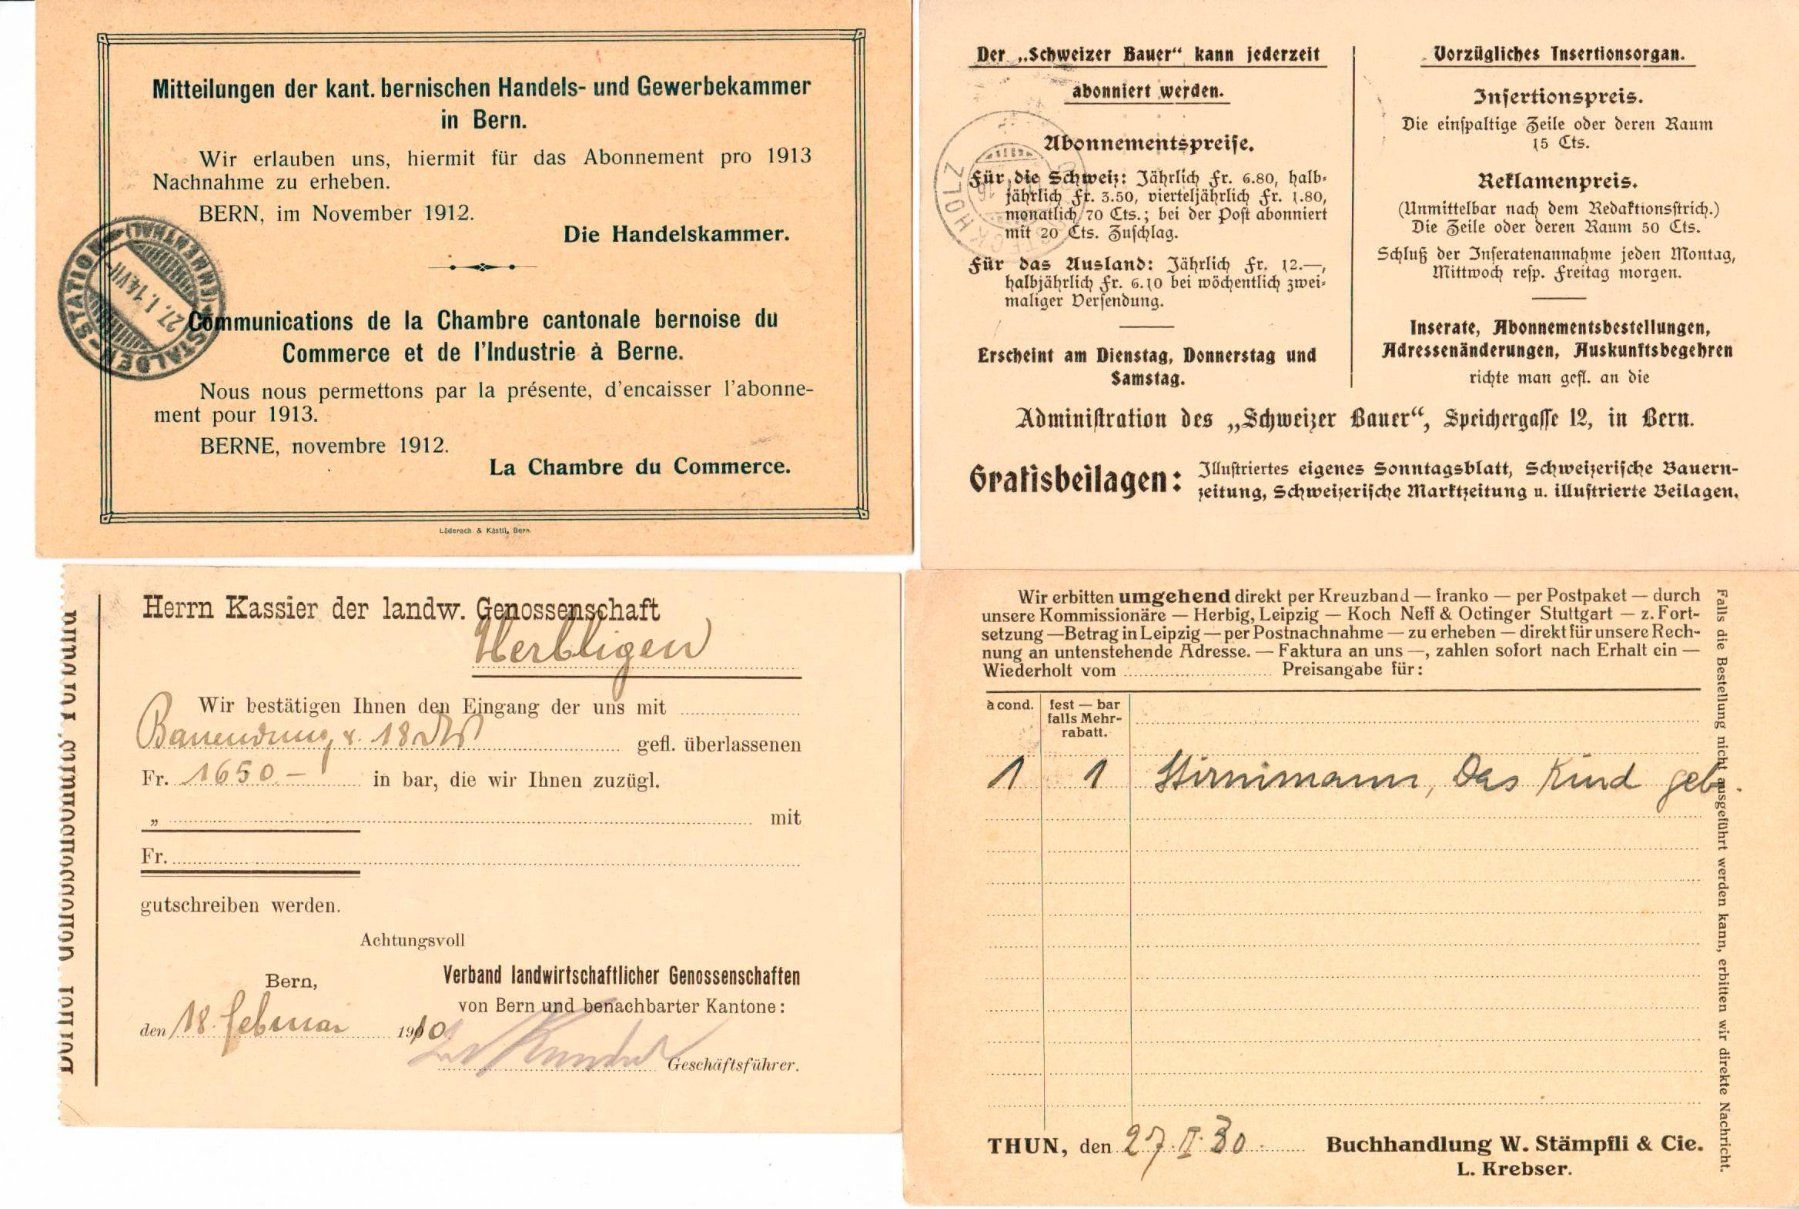 Mitteilungen der kant. bernischen Handels- und Gewerbekammer
in Bern.
Wir erlauben uns, hiermit für das Abonnement pro 1913
Nachnahme zu erheben.
BERN, im November 1912.
Die Handelskammer.
Communications de la Chambre cantonale bernoise du
Commerce et de l'Industrie à Berne.
Nous nous permettons par la présente, d'encaisser l'abonne-
ment pour 1913.
BERNE, novembre 1912.
La Chambre du Commerce.
Läderach & Kästli, Bern
STALDEN-STATION (EMMENTHAL)
27.I.14.VII-
Der „Schweizer Bauer“ kann jederzeit
abonniert werden.
Abonnementspreise.
Für die Schweiz: Jährlich Fr. 6.80, halb-
jährlich Fr. 3.50, vierteljährlich Fr. 1.80,
monatlich 70 Cts.; bei der Post abonniert
mit 20 Cts. Zuschlag.
Für das Ausland: Jährlich Fr. 12.—,
halbjährlich Fr. 6.10 bei wöchentlich zwei-
maliger Versendung.
Erscheint am Dienstag, Donnerstag und
Samstag.
Vorzügliches Insertionsorgan.
Insertionspreis.
Die einspaltige Zeile oder deren Raum
15 Cts.
Reklamenpreis.
(Unmittelbar nach dem Redaktionsstrich.)
Die Zeile oder deren Raum 50 Cts.
Schluß der Inseratenannahme jeden Montag,
Mittwoch resp. Freitag morgen.
Inserate, Abonnementsbestellungen,
Adressenänderungen, Auskunftsbegehren
richte man gefl. an die
Administration des „Schweizer Bauer“, Speichergasse 12, in Bern.
Gratisbeilagen: Illustriertes eigenes Sonntagsblatt, Schweizerische Bauern-
zeitung, Schweizerische Marktzeitung u. illustrierte Beilagen.
Herrn Kassier der landw. Genossenschaft
Herbligen
Wir bestätigen Ihnen den Eingang der uns mit
gefl. überlassenen
Fr. 1650.– in bar, die wir Ihnen zuzügl.
„ mit
Fr.
gutschreiben werden.
Achtungsvoll
Bern,
den 18. Februar 1910
Verband landwirtschaftlicher Genossenschaften
von Bern und benachbarter Kantone:
Geschäftsführer.
Wir erbitten umgehend direkt per Kreuzband — franko — per Postpaket — durch
unsere Kommissionäre — Herbig, Leipzig — Koch Neff & Oetinger Stuttgart — z. Fort-
setzung — Betrag in Leipzig — per Postnachnahme — zu erheben — direkt für unsere Rech-
nung an untenstehende Adresse. — Faktura an uns —, zahlen sofort nach Erhalt ein —
Wiederholt vom Preisangabe für:
à cond.
fest — bar
falls Mehr-
rabatt.
1 1 Stirnimann, Das Kind geb.
THUN, den 27.II.30.
Buchhandlung W. Stämpfli & Cie.
L. Krebser.
Falls die Bestellung nicht ausgeführt werden kann, erbitten wir direkte Nachricht.